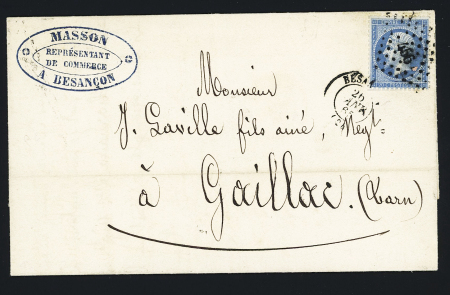 MASSON
REPRÉSENTANT
DE COMMERCE
A BESANÇON
BESA
Monsieur
J. Laville fils ainé, Negt
à Gaillac. (Tarn)